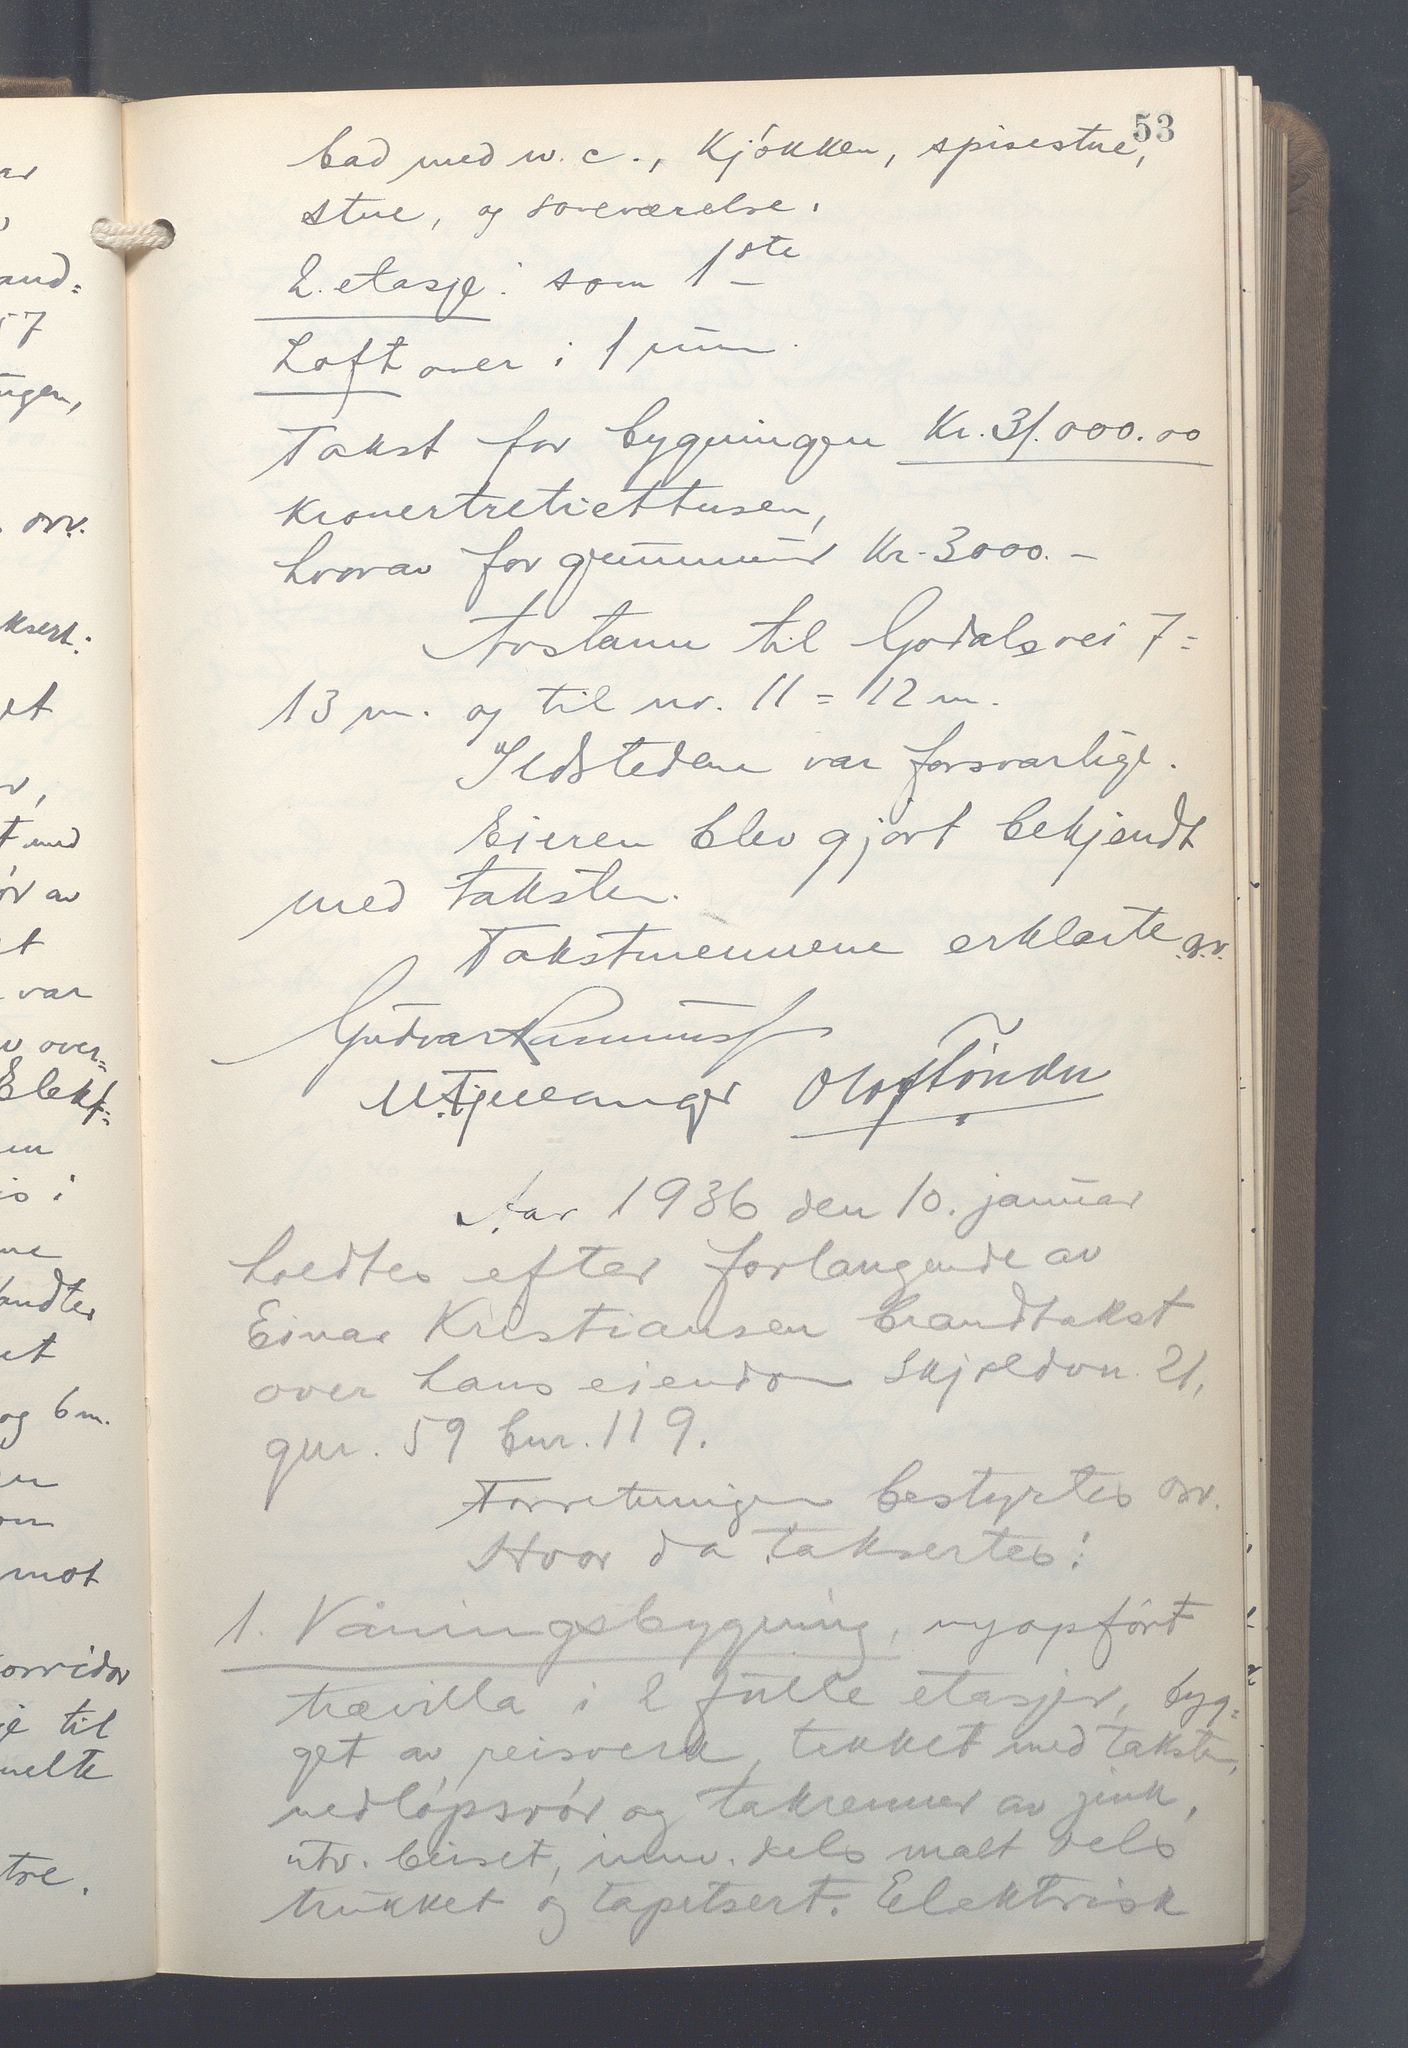 53
bad med w. c., kjókken, spisestue,
stue, og soveværelse.
2. etasje: som 1ste
Loft over i 1 rum.
Takst for bygningen Kr. 31.000.00
kronertretiettusen,
hvorav for grunnmur Kr. 3000.-
Avstann til Godalsvei 7 =
13 m. og til nr. 11 = 12 m.
Ildstedene var forsvarlige.
Eieren blev gjort bekjendt
med taksten.
Takstmennene erklærte o.s.v.
Gudvar Rasmuss
M. Tjueanger Olaf Tönder
Aar 1936 den 10. januar
holdtes efter forlangende av
Einar Kristiansen brandtakst
over hans eiendom Skjoldvn. 21,
gnr. 59 bnr. 119.
Forretningen bestyrtes osv.
Hvor da taksertes:
1. Våningsbygning, nyopfórt
trævilla i 2 fulle etasjer, byg=
get av reisverk, tekket med taksten,
nedlópsrór og takrenner av zink,
utv. beiset, innv. dels malt dels
trukket og tapetsert. Elektrisk
and=
57
ingen,
osv.
ksert:
et
t med
ór av
t
var
over=
Elekt=
is i
andtes
et
og 6 m.
mot
korridor
je til
melte
tre.